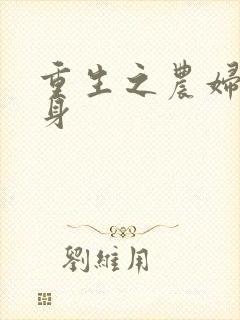 重生之農婦
身
劉維用